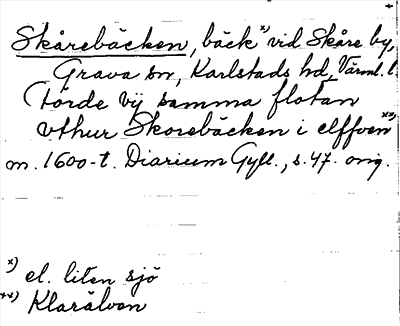 Skårebäcken, bäck x) vid Skåre by,
Grava sn, Karlstads hd, Värml. l.
(törde vij samma flotan
vthur Skorebäcken i elffven xx)
m. 1600-t. Diarium Gyll., s. 47. orig.
x) el. liten sjö
xx) Klarälven